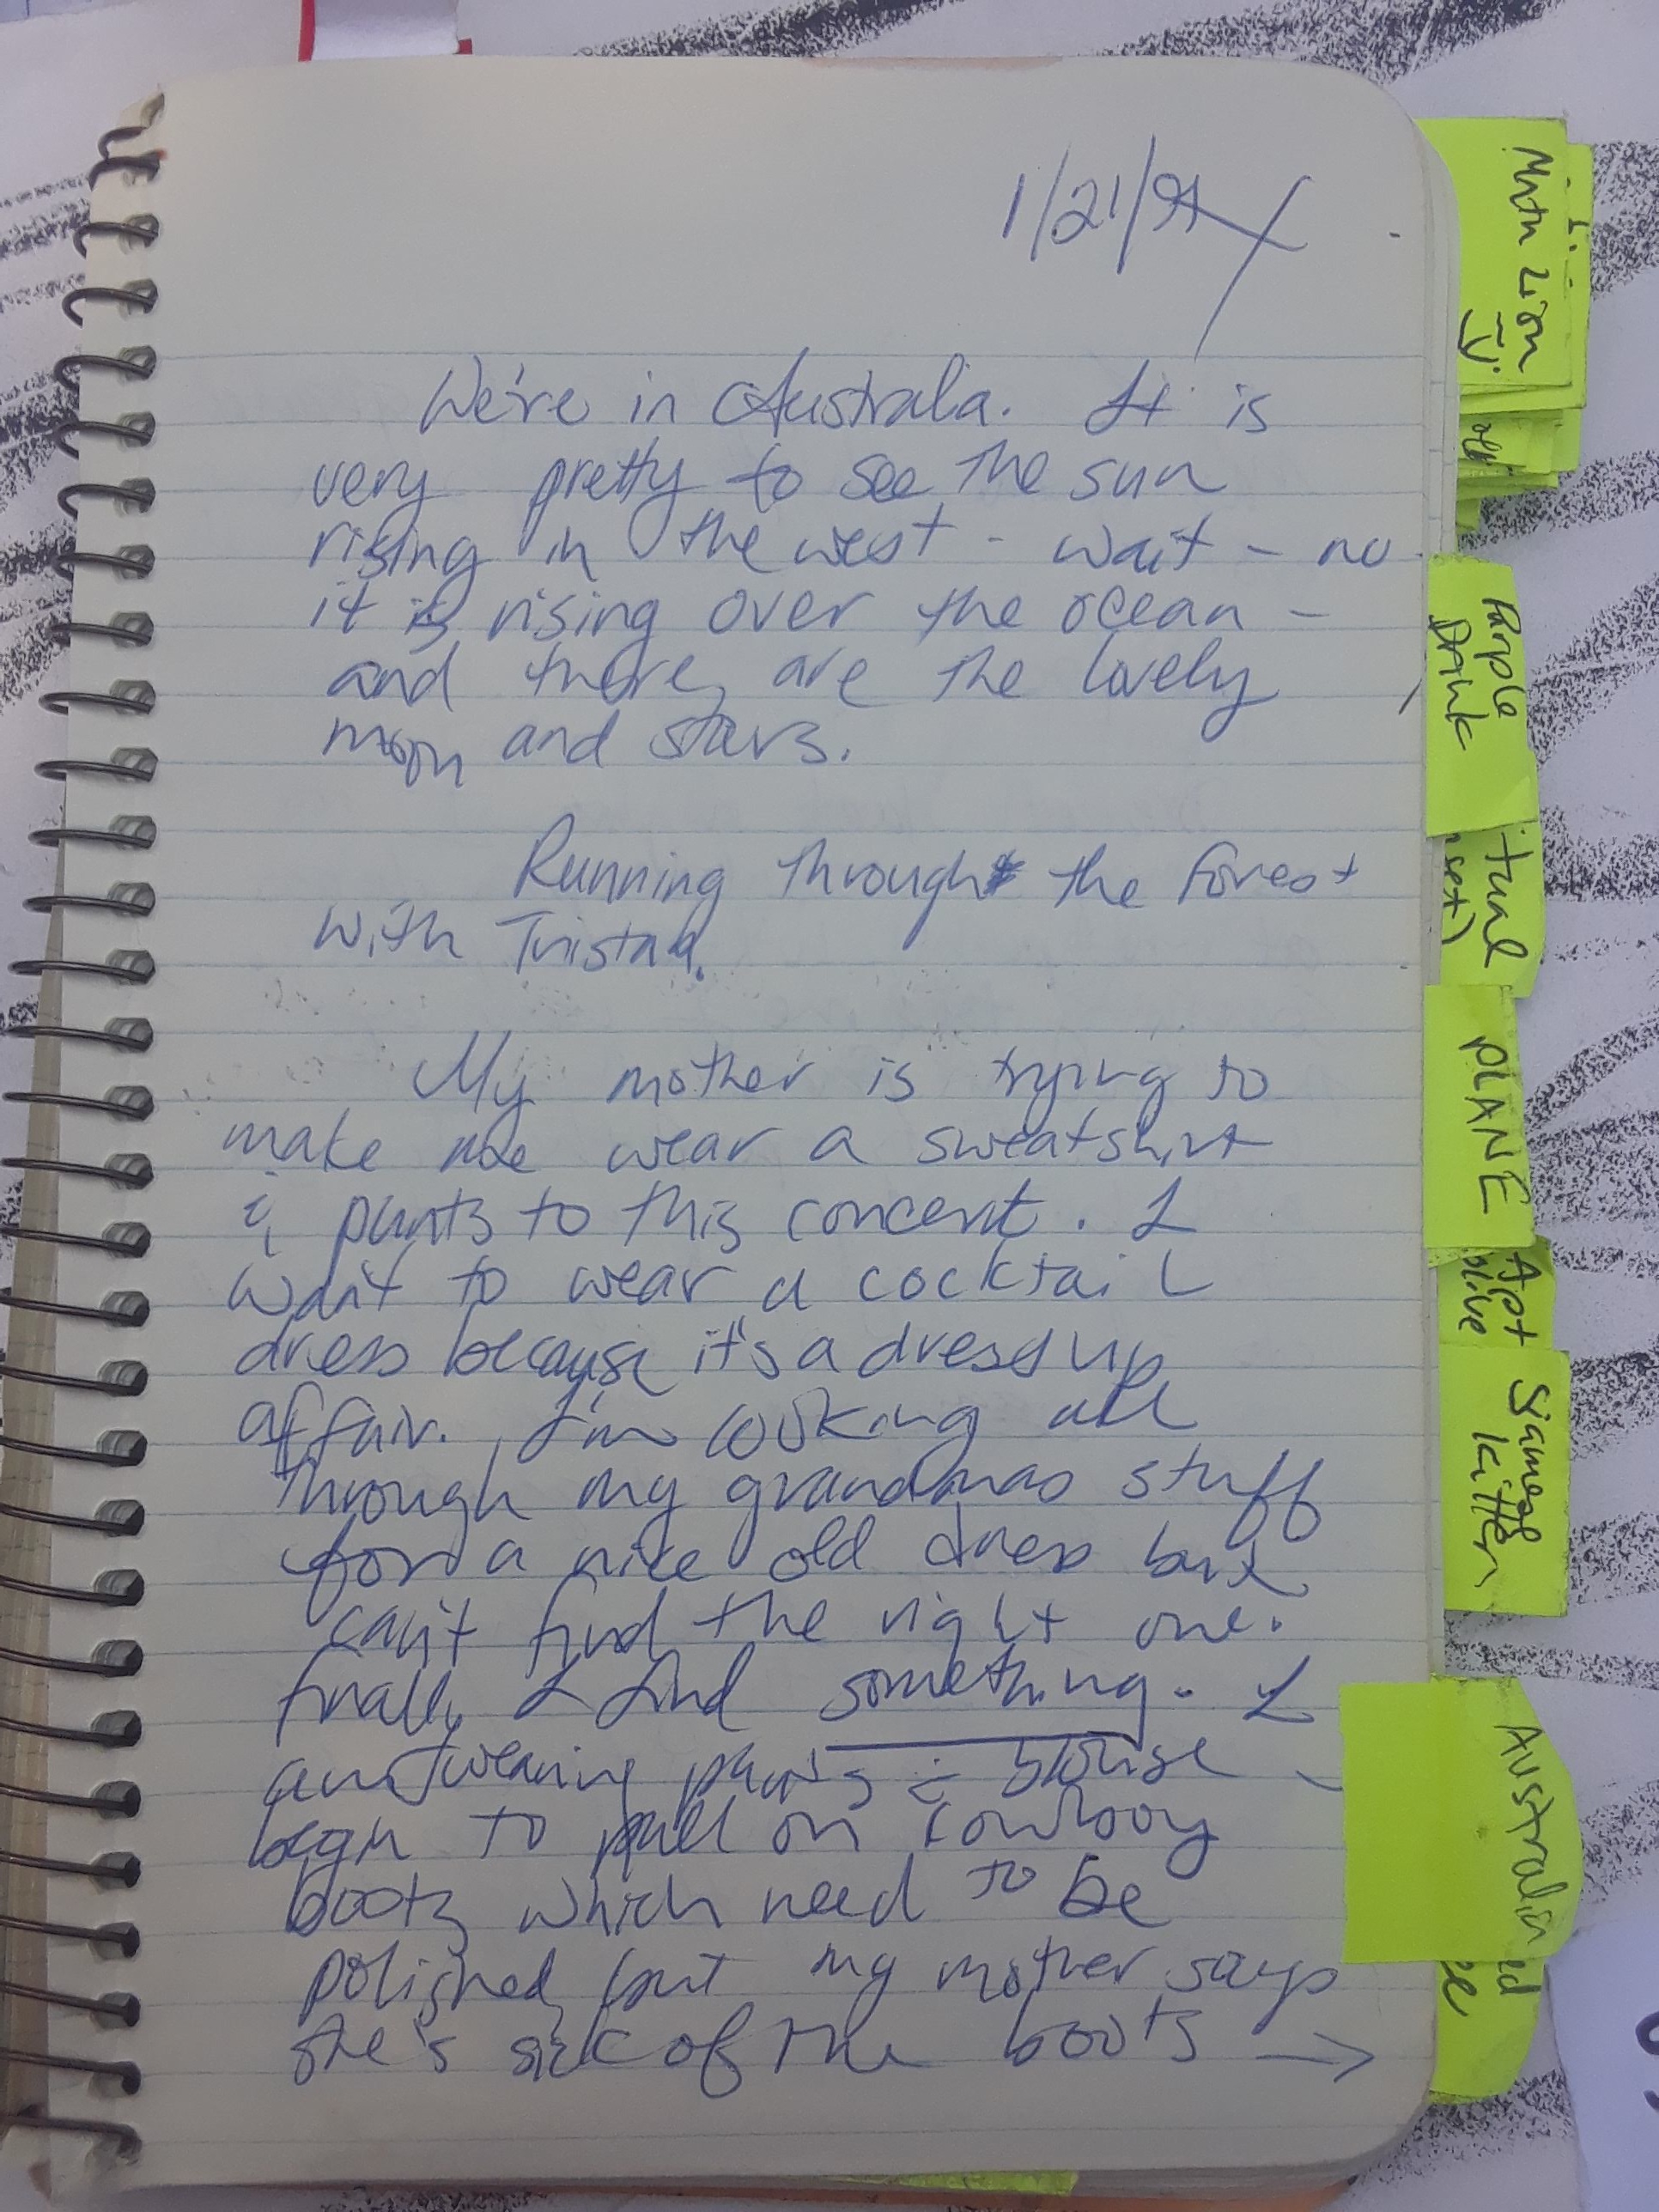 1/21/91
We're in Australia. It is
very pretty to see the sun
rising in the west - wait - no
it is rising over the ocean -
and there are the lovely
moon and stars.
Running through the forest
with Tristan.
My mother is trying to
make me wear a sweatshirt
& pants to this concert. I
want to wear a cocktail
dress because it's a dress up
affair. I'm looking all
through my grandmas stuff
for a nice old dress but
can't find the right one.
finally I find something. I
am wearing pants & blouse -
begin to pull on cowboy
boots which need to be
polished, but my mother says
she's sick of the boots →
Mntn Lion
Purple
Drink
PLANE
Apt
olive
Siamese
kitten
Australia